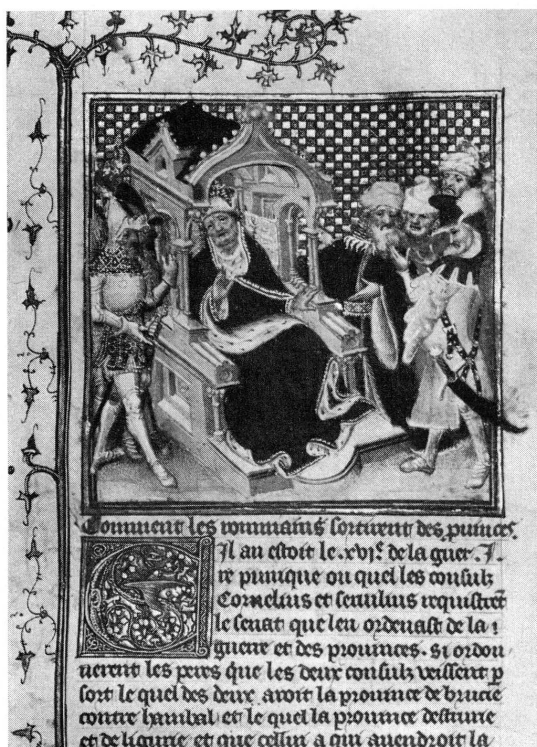 Comment les rommains sortirent des prouinces.
Cil an estoit le .xvi.e de la guer
re punique ou quel les consulz
Cornelius et seruilius requistrent
le senat que len ordenast de la
guerre et des prouinces. si ordon
nerent les peres que les deux consulz veissent p
sort le quel des deux auroit la prouince de brucie
contre hanibal et le quel la prouince destrurie
et de ligurie et que cellui a qui auendroit la